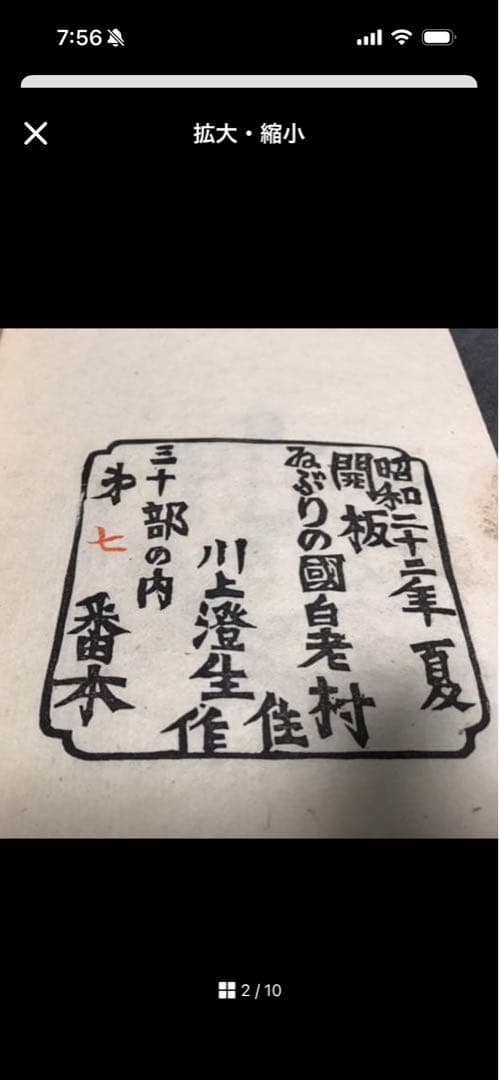 7:56
拡大・縮小
昭和二十二年 夏
開板
ゑぶりの國白老村
住
川上澄生
作
三十部の内
第七番本
2 / 10